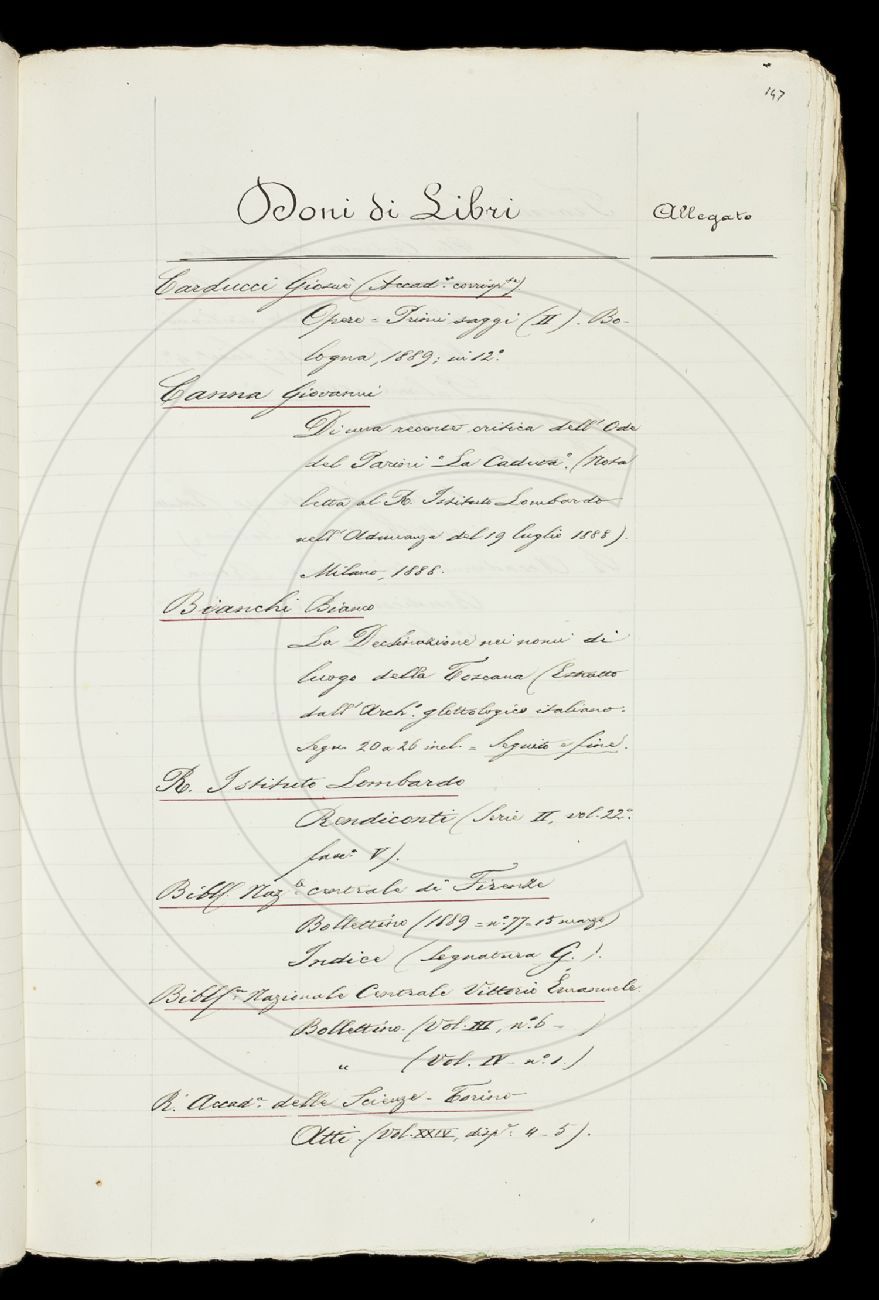 147
Doni di Libri
Allegato
Carducci Giosuè (Accad.º corrisp.te)
Opere = Primi saggi (II). Bo-
logna, 1889; in 12º.
Canna Giovanni
Di una recente critica dell'Ode
del Parini "La Caduta". (Nota
letta al R. Istituto Lombardo
nell'Adunanza del 19 luglio 1888).
Milano, 1888.
Bianchi Bianco
La Declinazione nei nomi di
luogo della Toscana (Estratto
dall'Arch.º glottologico italiano.
Segn. 20 a 26 incl. = Seguito e fine.
R. Istituto Lombardo
Rendiconti (Serie II, vol. 22º.
fasc.º V).
Bibl. Naz.le centrale di Firenze
Bollettino (1889 = nº 77 = 15 marzo)
Indice (Segnatura G.).
Bibl. Nazionale Centrale Vittorio Emanuele
Bollettino. (Vol. III, nº 6 - )
" (Vol. IV - nº 1)
R. Accad.ª delle Scienze - Torino
Atti. (Vol. XXIV, disp.e 4 - 5).